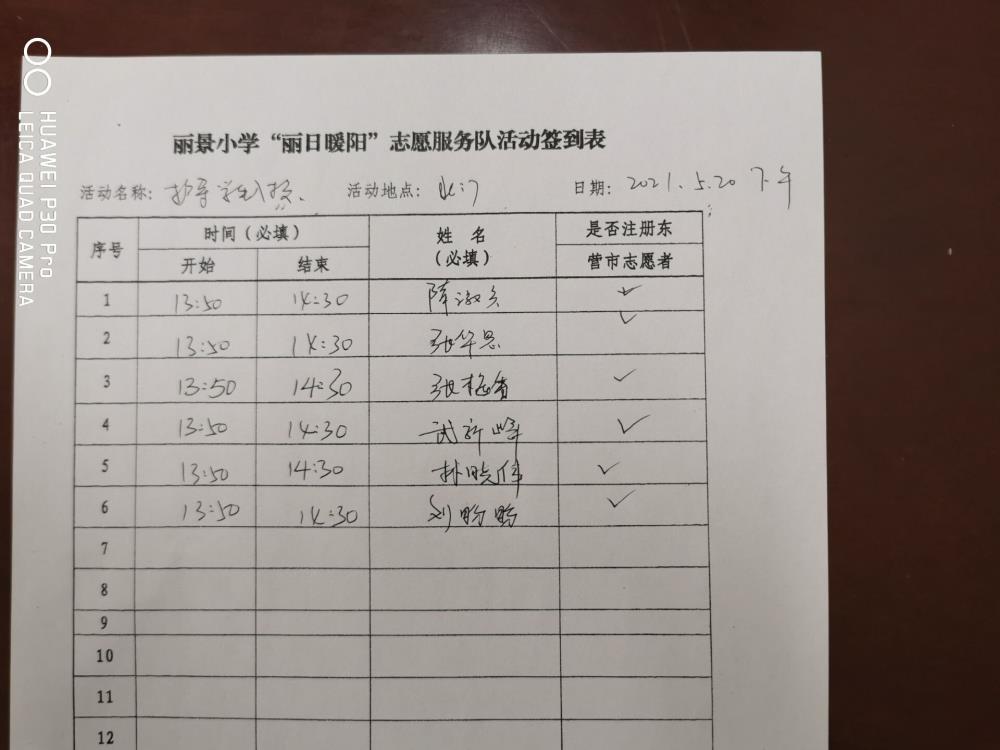 HUAWEI P30 Pro
LEICA QUAD CAMERA
丽景小学“丽日暖阳”志愿服务队活动签到表
活动名称：护导学生入校、 活动地点：北门 日期：2021.5.20 下午
序号 时间（必填） 姓 名（必填） 是否注册东营市志愿者
开始 结束
1 13:50 14:30 ✓
2 13:50 14:30 张华思 ✓
3 13:50 14:30 张梅香 ✓
4 13:50 14:30 武新峰 ✓
5 13:50 14:30 林晓伟 ✓
6 13:50 14:30 刘盼盼 ✓
7
8
9
10
11
12